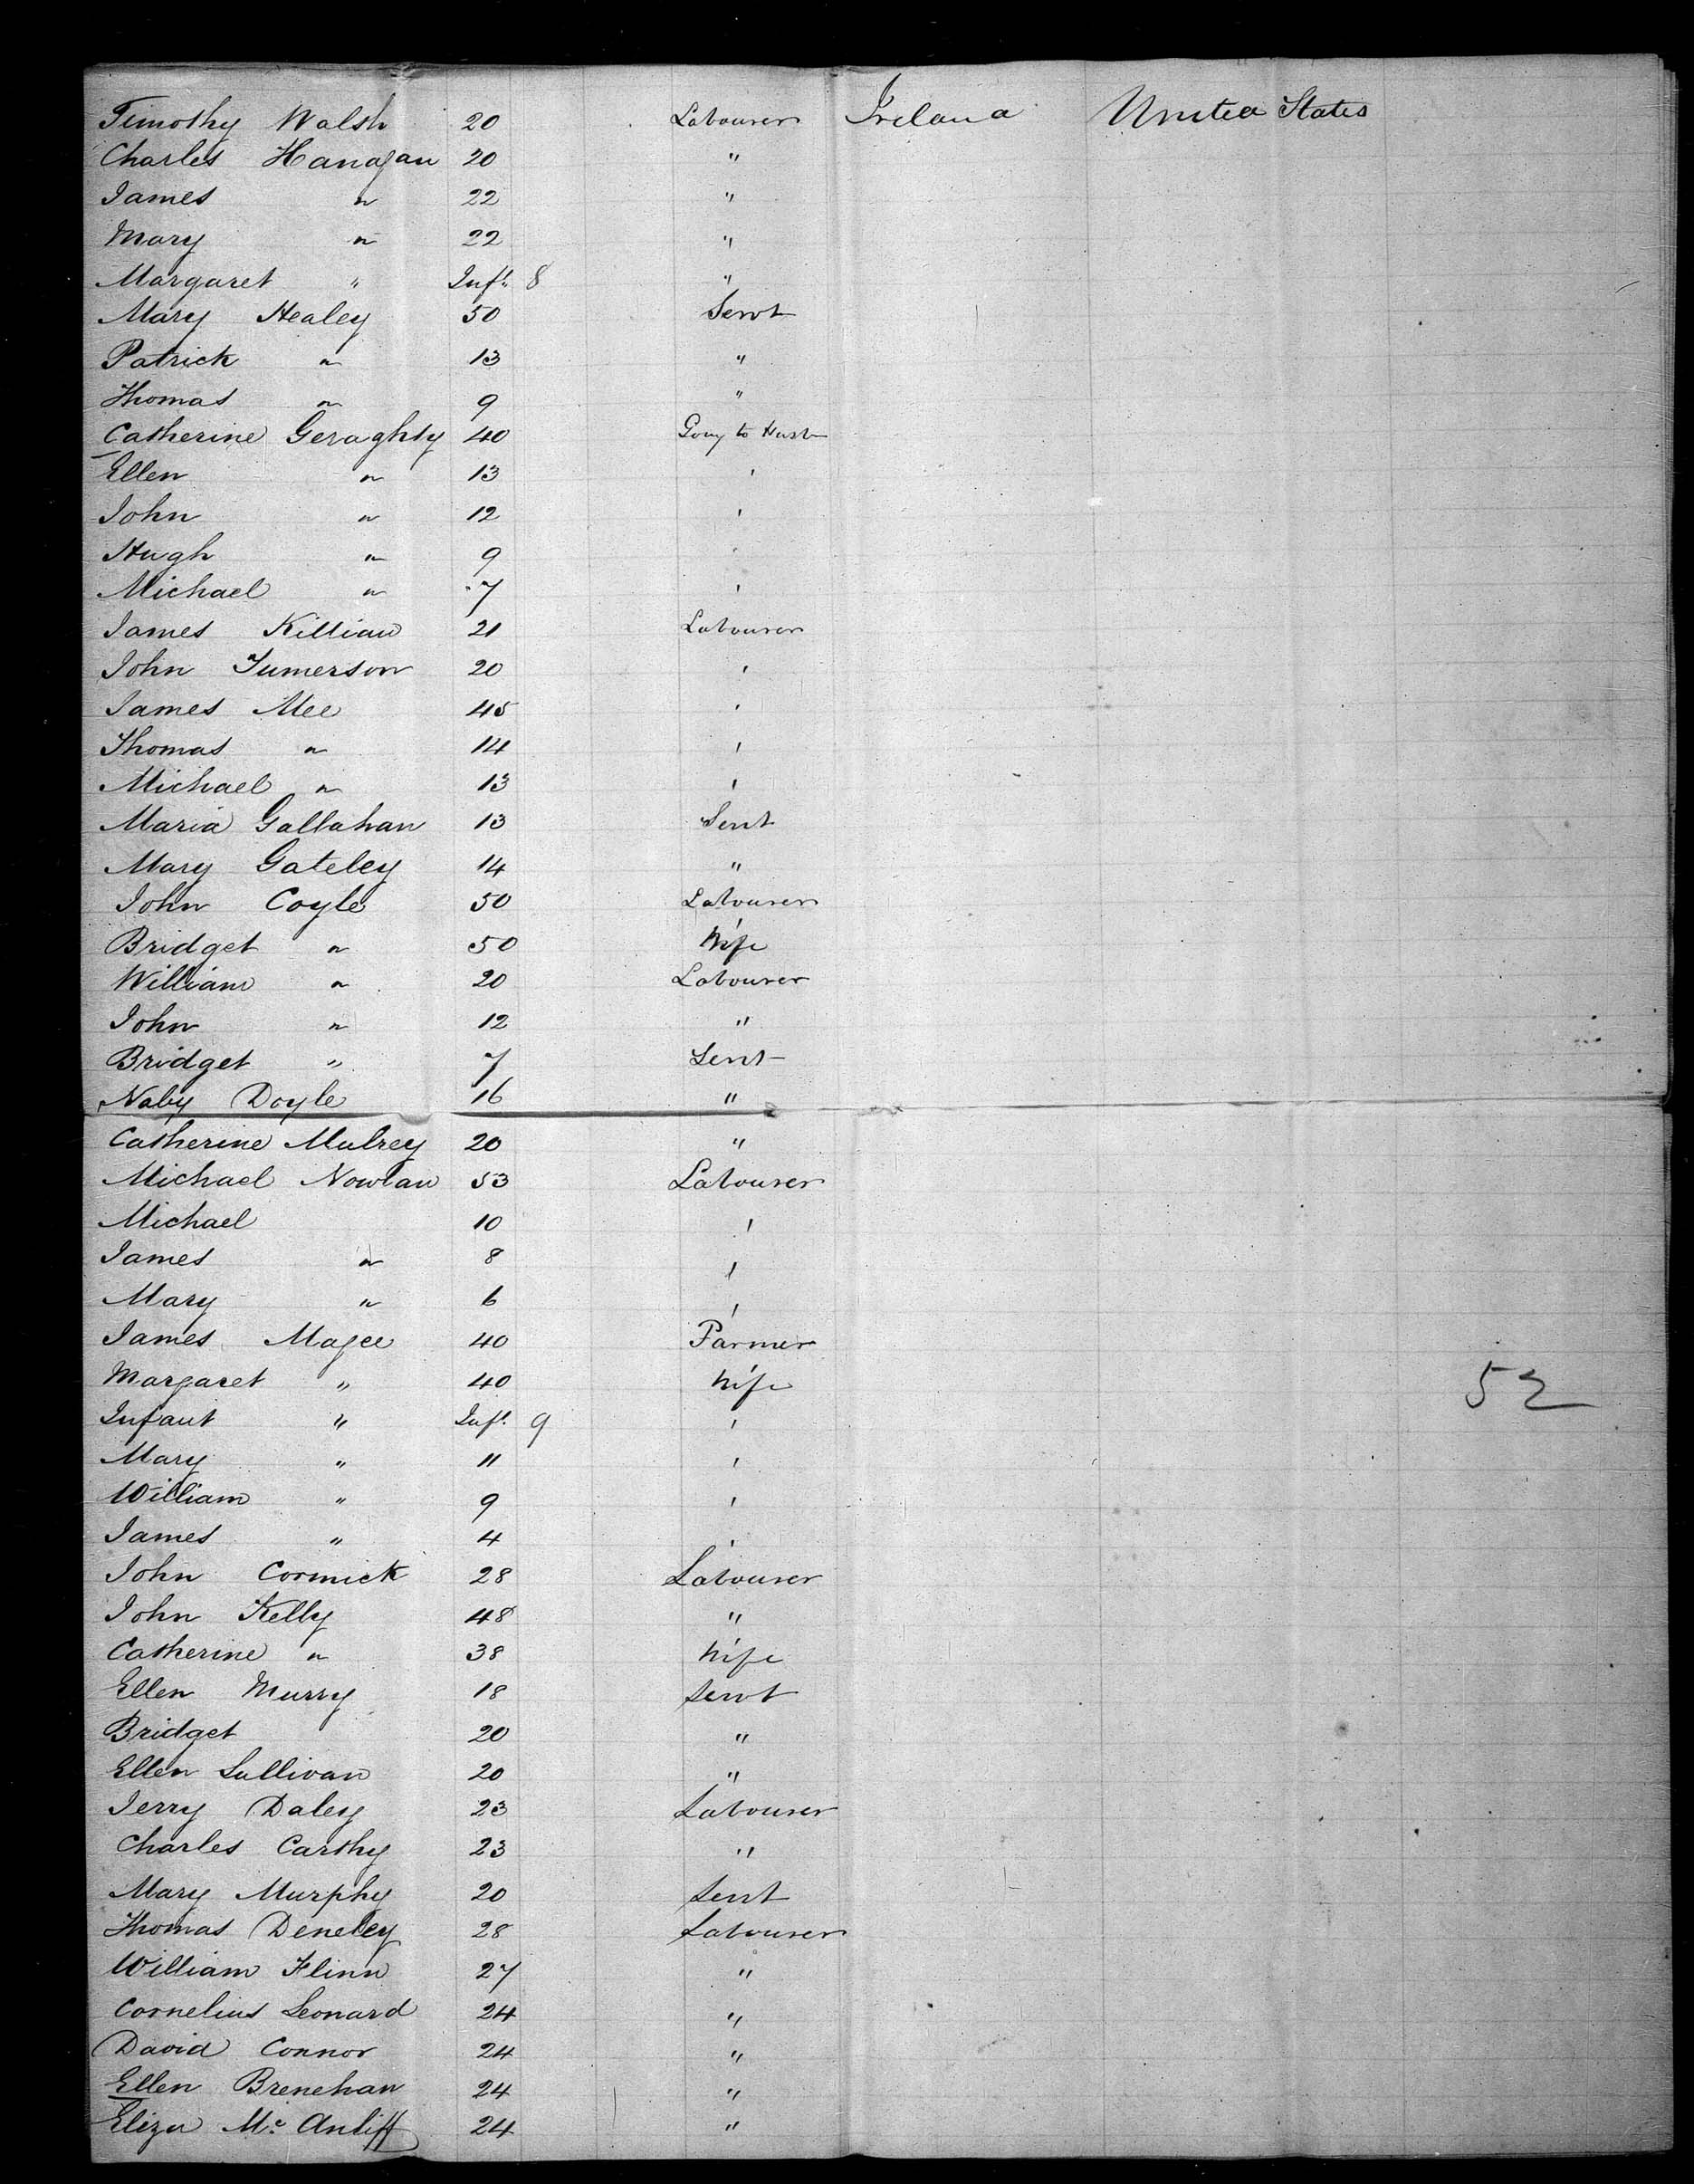 Timothy Walsh 20 Labourer Ireland United States
Charles Hanagan 20 "
James " 22 "
Mary " 22 "
Margaret " Inft. 8 "
Mary Healey 50 Servt
Patrick " 13 "
Thomas " 9 "
Catherine Geraghty 40 Going to Husb
Ellen " 13 '
John " 12 '
Hugh " 9 '
Michael " 7 '
James Killian 21 Labourer
John Jumerson 20 '
James Mee 45 '
Thomas " 14 '
Michael " 13 '
Maria Gallahan 13 Servt
Mary Gateley 14 "
John Coyle 50 Labourer
Bridget " 50 Wife
William " 20 Labourer
John " 12 "
Bridget " 7 Servt
Naby Doyle 16 "
Catherine Mulrey 20 "
Michael Nowlan 53 Labourer
Michael 10 '
James " 8 '
Mary " 6 '
James Magee 40 Farmer
Margaret " 40 Wife
Infant " Inft. 9 '
Mary " 11 '
William " 9 '
James " 4 '
John Cormick 28 Labourer
John Kelly 48 "
Catherine " 38 Wife
Ellen Murry 18 Servt
Bridget 20 "
Ellen Sullivan 20 "
Jerry Daley 23 Labourer
Charles Carthy 23 "
Mary Murphy 20 Servt
Thomas Deneley 28 Labourer
William Flinn 27 "
Cornelius Leonard 24 "
David Connor 24 "
Ellen Brenehan 24 "
Eliza Mc Anliff 24 "
52